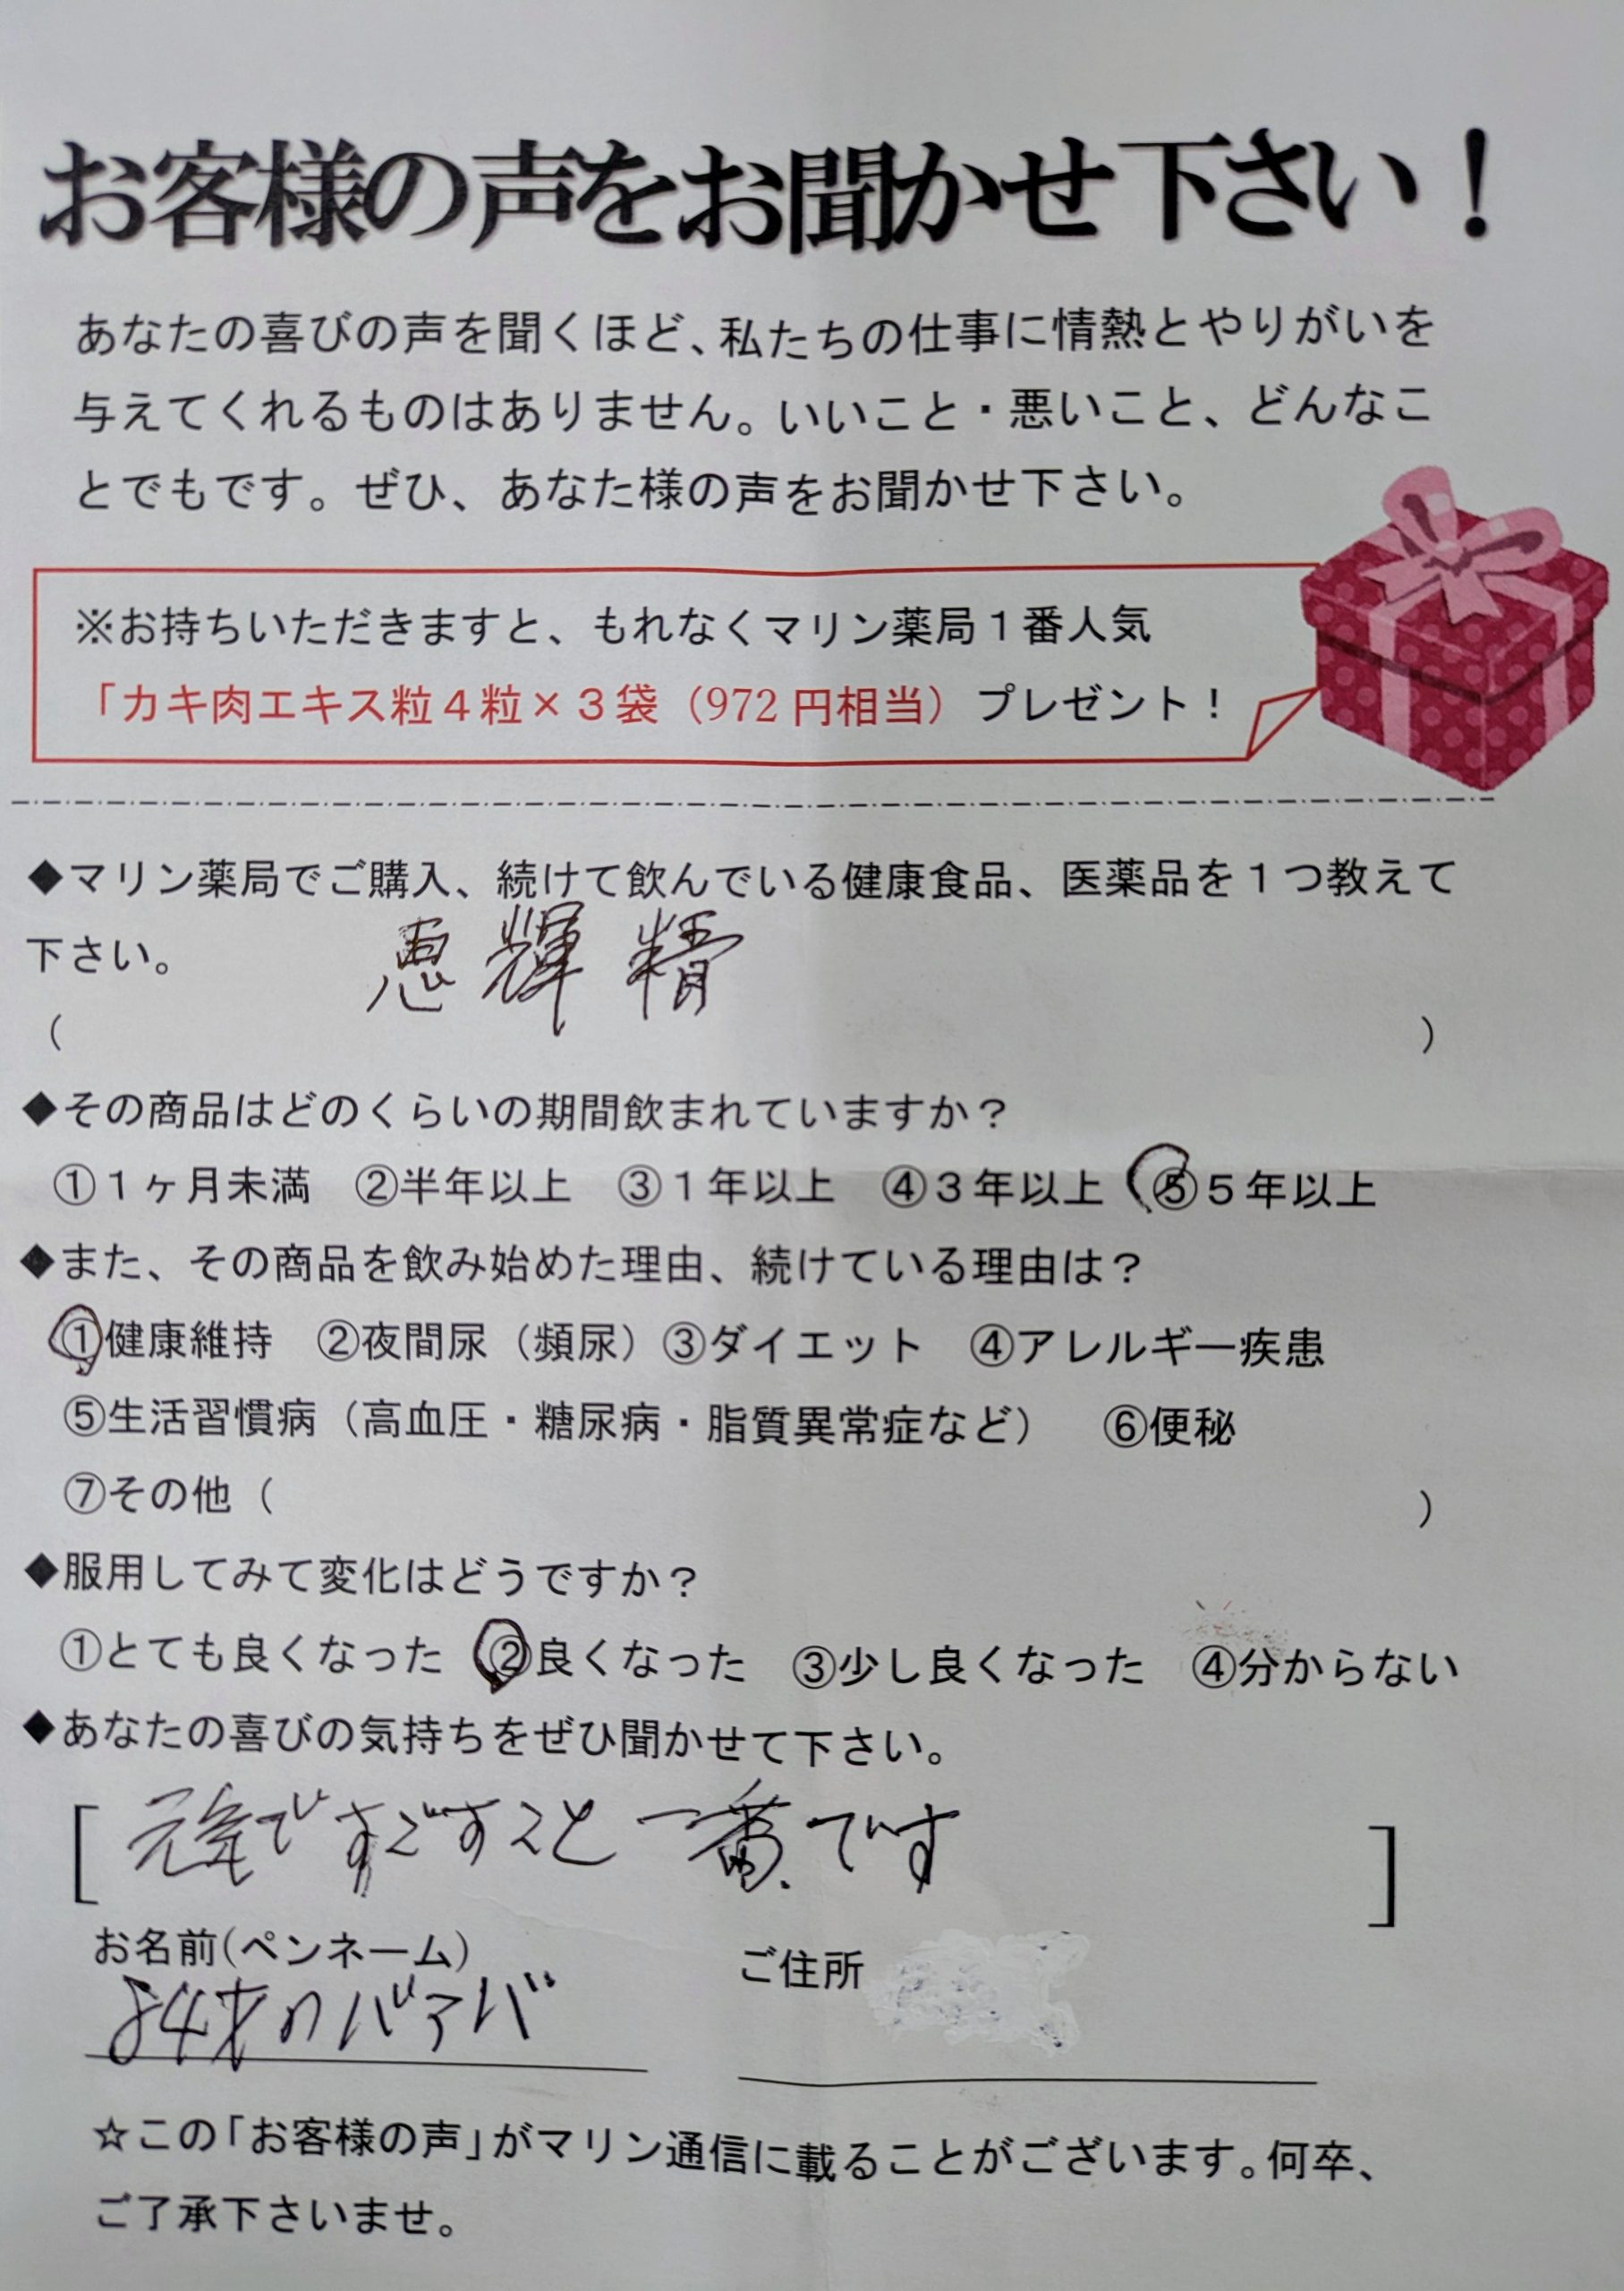 お客様の声をお聞かせ下さい！
あなたの喜びの声を聞くほど、私たちの仕事に情熱とやりがいを
与えてくれるものはありません。いいこと・悪いこと、どんなこ
とでもです。ぜひ、あなた様の声をお聞かせ下さい。
※お持ちいただきますと、もれなくマリン薬局１番人気
「カキ肉エキス粒４粒×３袋（972円相当） プレゼント！
◆マリン薬局でご購入、続けて飲んでいる健康食品、医薬品を１つ教えて
下さい。
恵輝精
（ ）
◆その商品はどのくらいの期間飲まれていますか？
①１ヶ月未満 ②半年以上 ③１年以上 ④３年以上 ⑤５年以上
◆また、その商品を飲み始めた理由、続けている理由は？
①健康維持 ②夜間尿（頻尿）③ダイエット ④アレルギー疾患
⑤生活習慣病（高血圧・糖尿病・脂質異常症など） ⑥便秘
⑦その他（ ）
◆服用してみて変化はどうですか？
①とても良くなった ②良くなった ③少し良くなった ④分からない
◆あなたの喜びの気持ちをぜひ聞かせて下さい。
[ 元気ですごすこと一番です ]
お名前(ペンネーム) ご住所
84才のバアバ
☆この「お客様の声」がマリン通信に載ることがございます。何卒、
ご了承下さいませ。